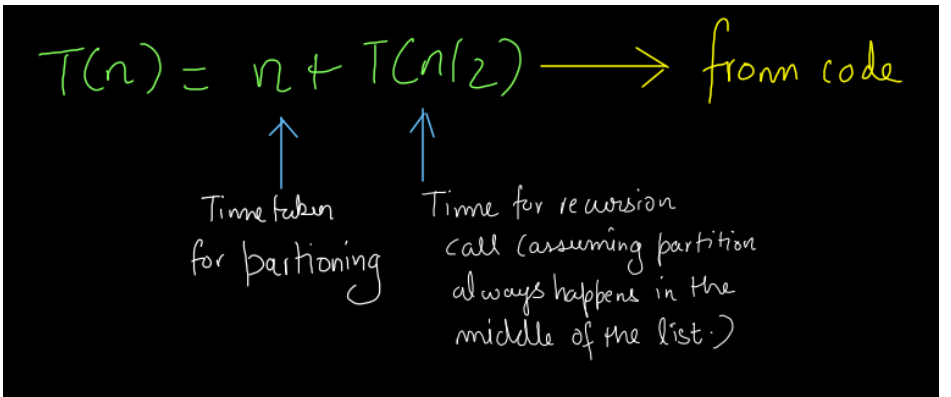 T(n) = n + T(n/2) → from code
Time taken
for partioning
Time for recursion
call (assuming partition
always happens in the
middle of the list.)